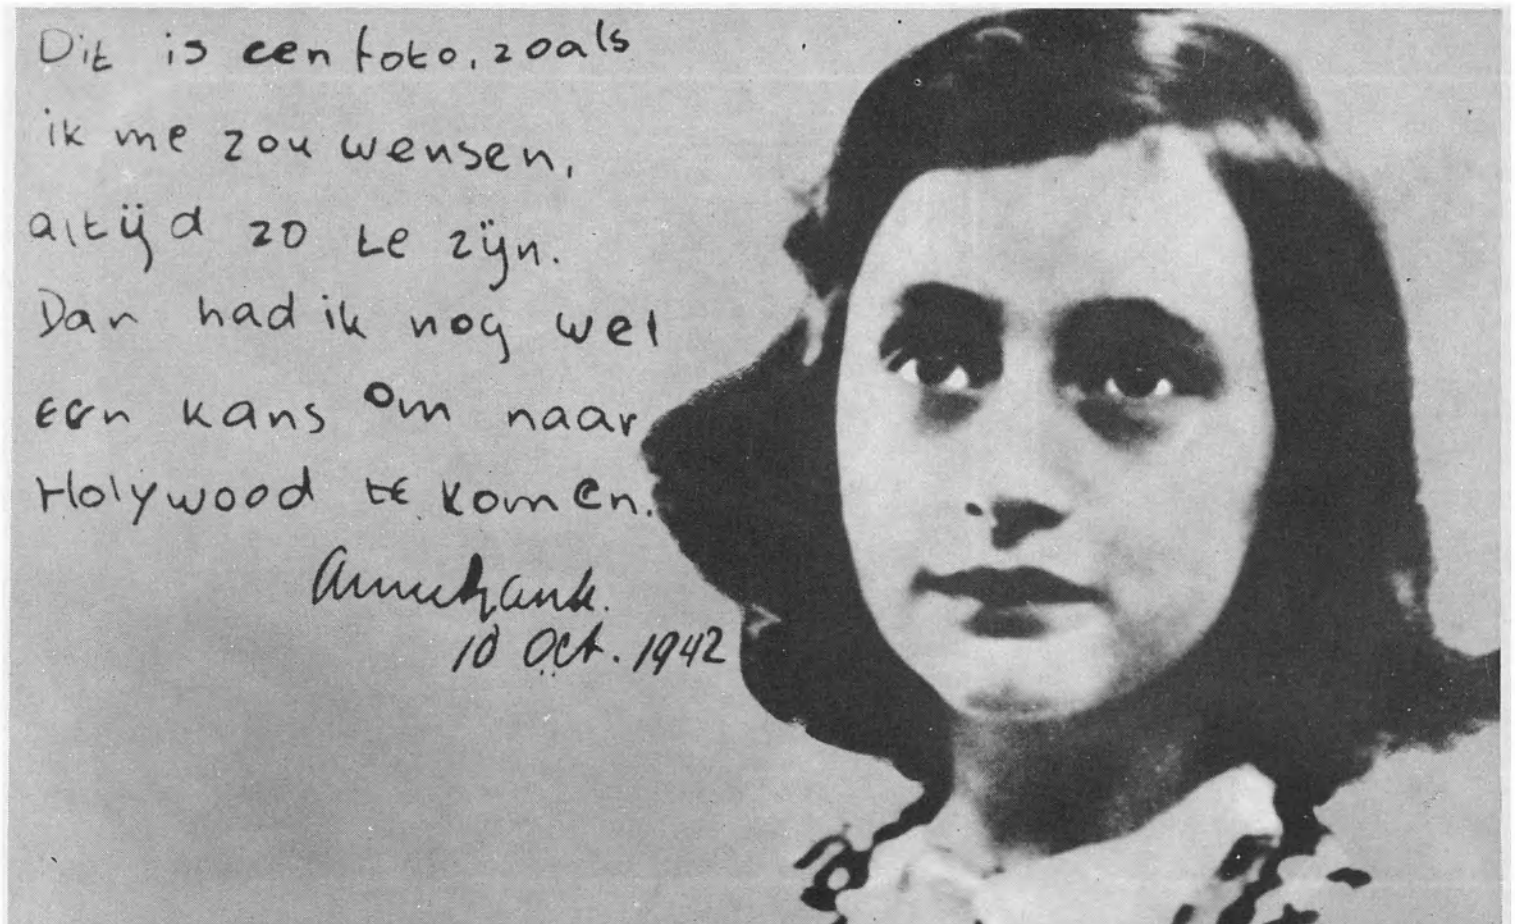 Dit is een foto, zoals
ik me zou wensen,
altijd zo te zijn.
Dan had ik nog wel
een kans om naar
Holywood te komen.
AnneFrank.
10 Oct. 1942